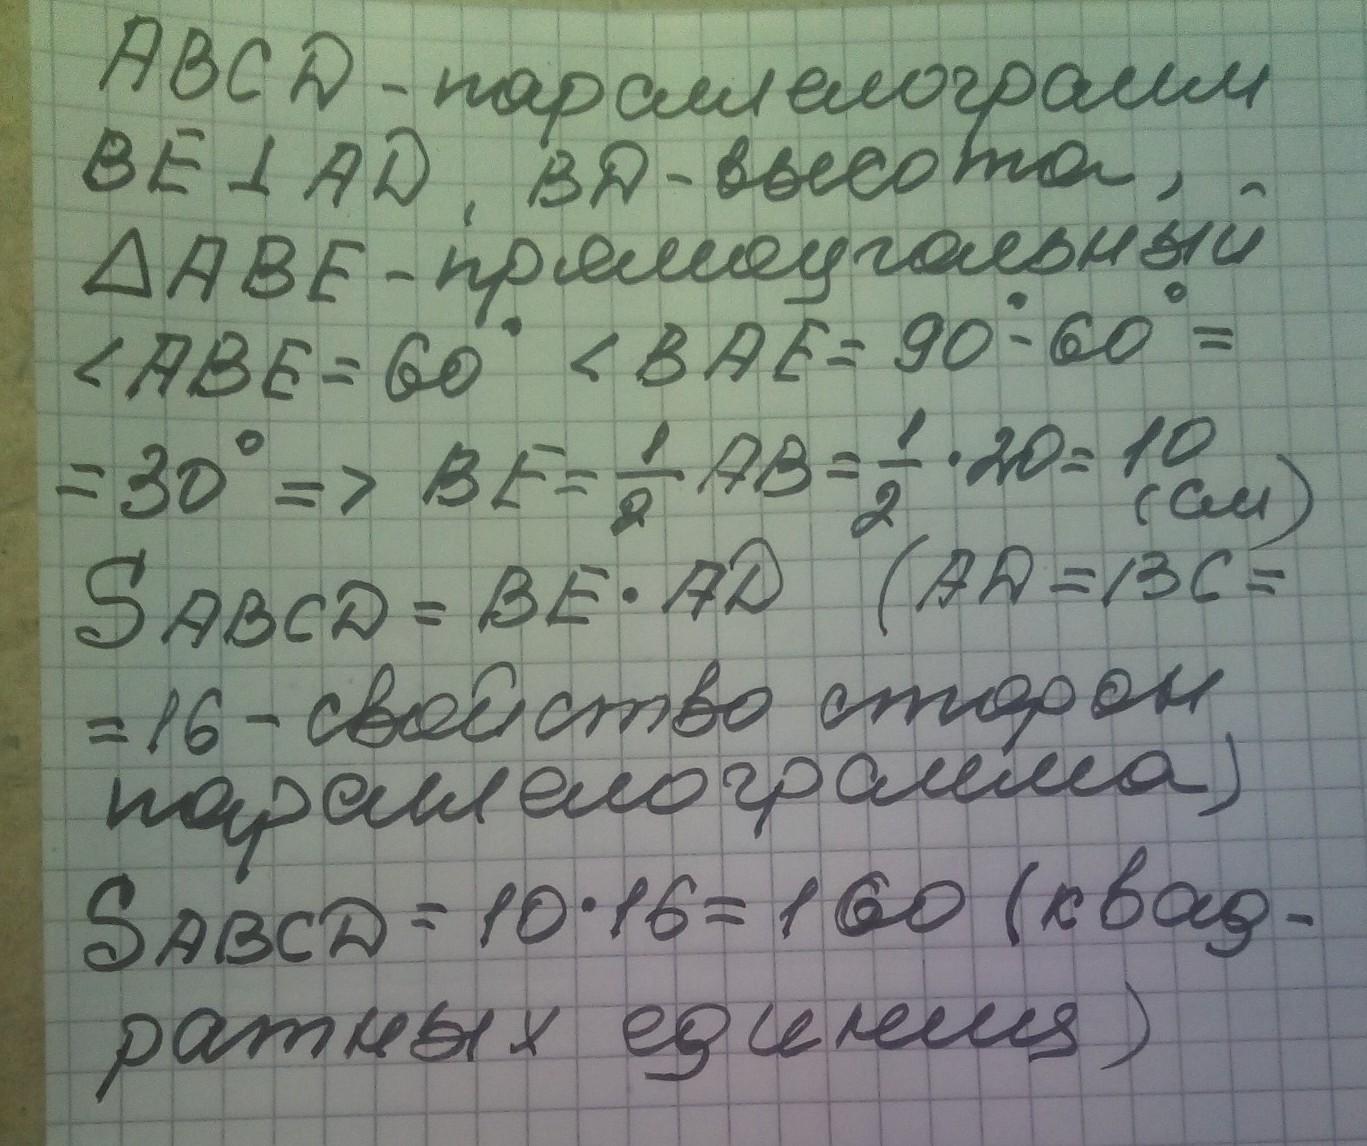 ABCD - параллелограмм
BE ⊥ AD, BD - высота,
△ABE - прямоугольный
<ABE = 60° <BAE = 90° - 60° =
= 30° => BE = 1/2 AB = 1/2 · 20 = 10 (см)
SABCD = BE · AD (AD = BC =
= 16 - свойство сторон
параллелограмма)
SABCD = 10 · 16 = 160 (квад-
ратных единиц)